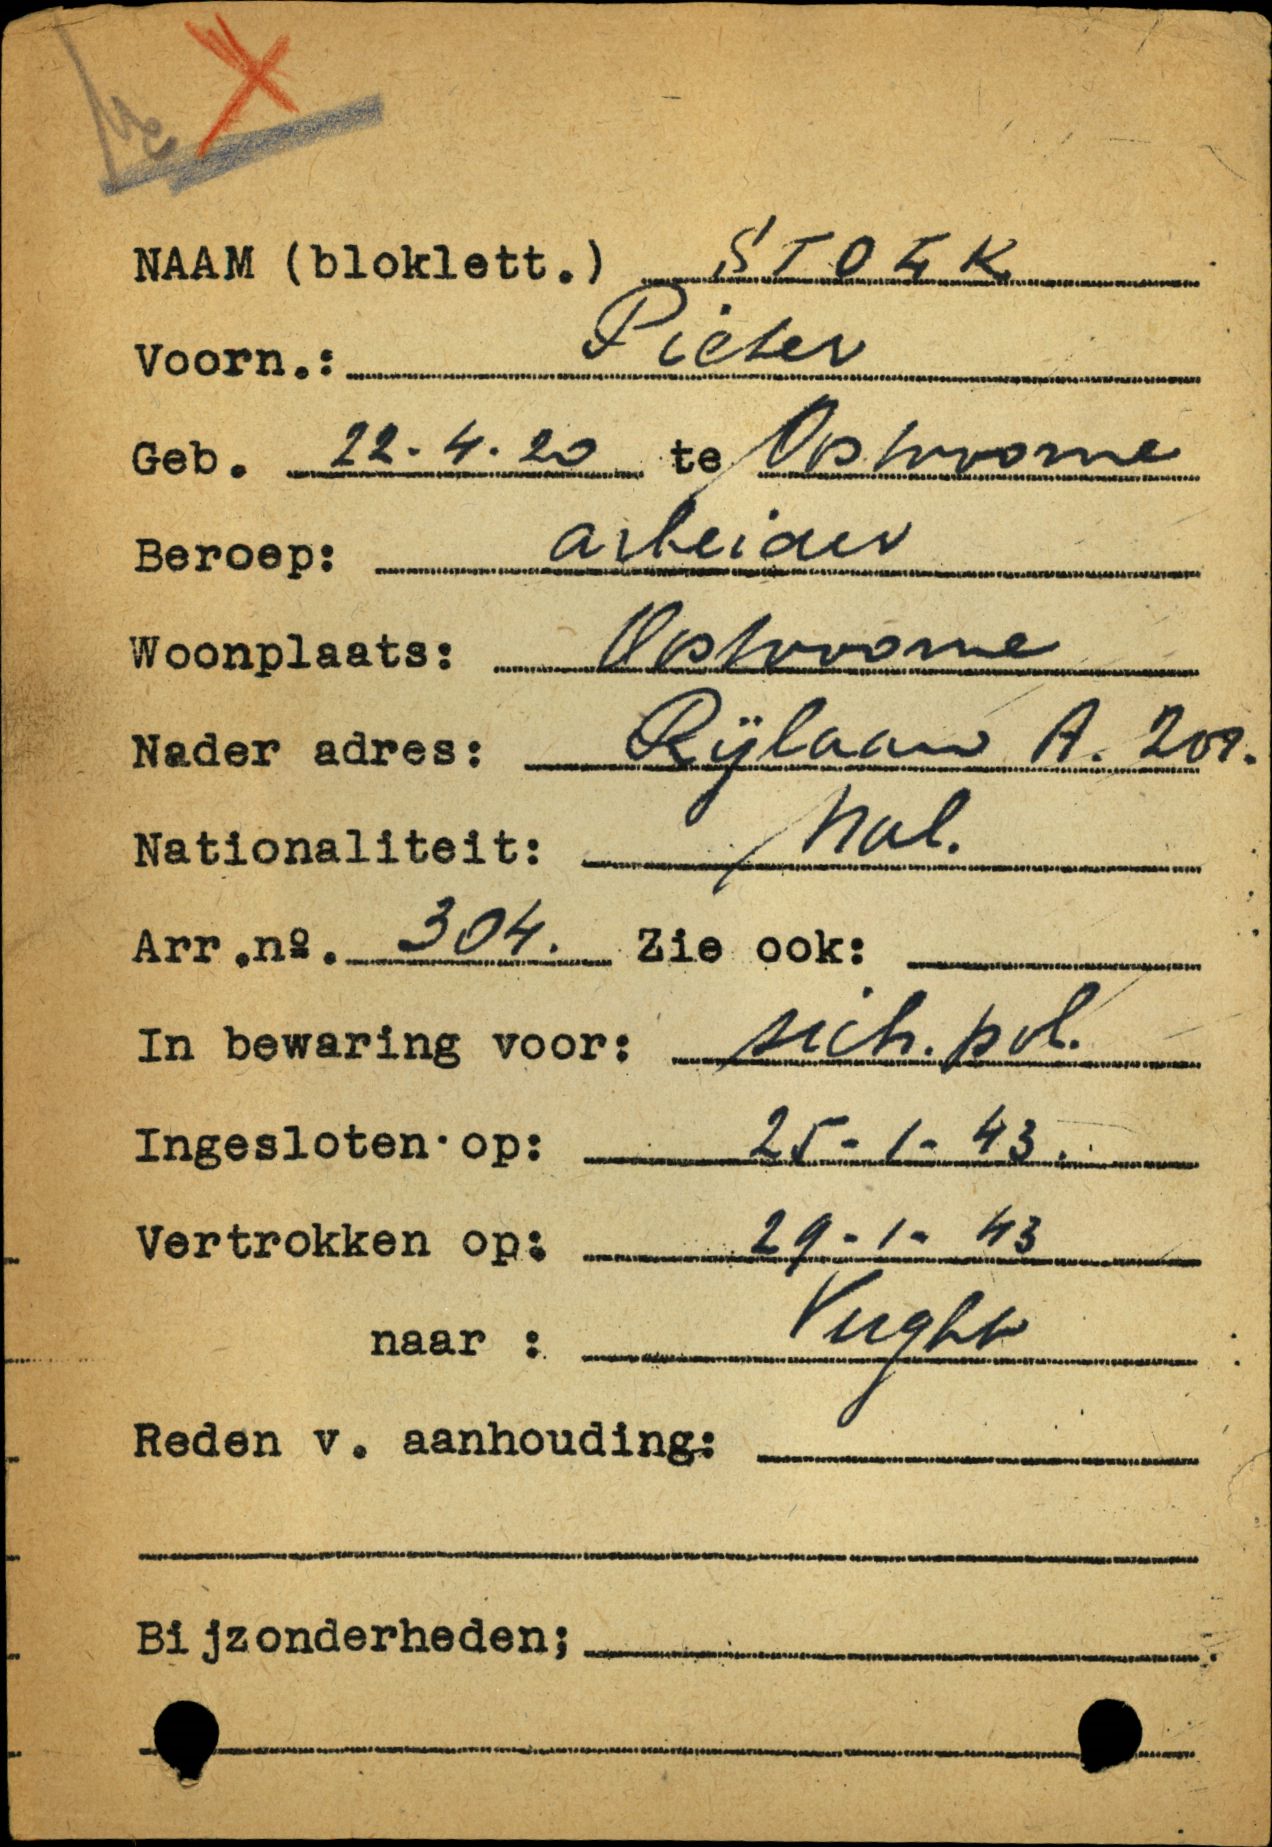 NAAM (bloklett.) STOLK
Voorn.: Pieter
Geb. 22-4-20 te Oostvoorne
Beroep: arbeider
Woonplaats: Oostvoorne
Nader adres: Rijlaan A. 209.
Nationaliteit: Ned.
Arr.nº. 304. Zie ook:
In bewaring voor: sich. pol.
Ingesloten op: 25-1-43.
Vertrokken op: 29-1-43
naar : Vught
Reden v. aanhouding:
Bijzonderheden;